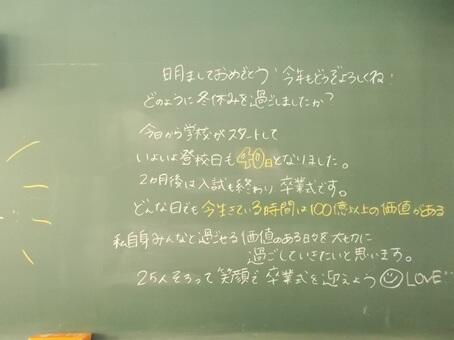 明ましておめでとう!今年もどうぞよろしくね!
どのように冬休みを過ごしましたか?
今日から学校がスタートして
いよいよ登校日も40日となりました。
2カ月後は入試も終わり卒業式です。
どんな日でも今生きている時間は100億以上の価値がある
私自身みんなと過ごせる価値のある日々を大切に
過ごしていきたいと思います。
25人そろって笑顔で卒業式を迎えよう LOVE…